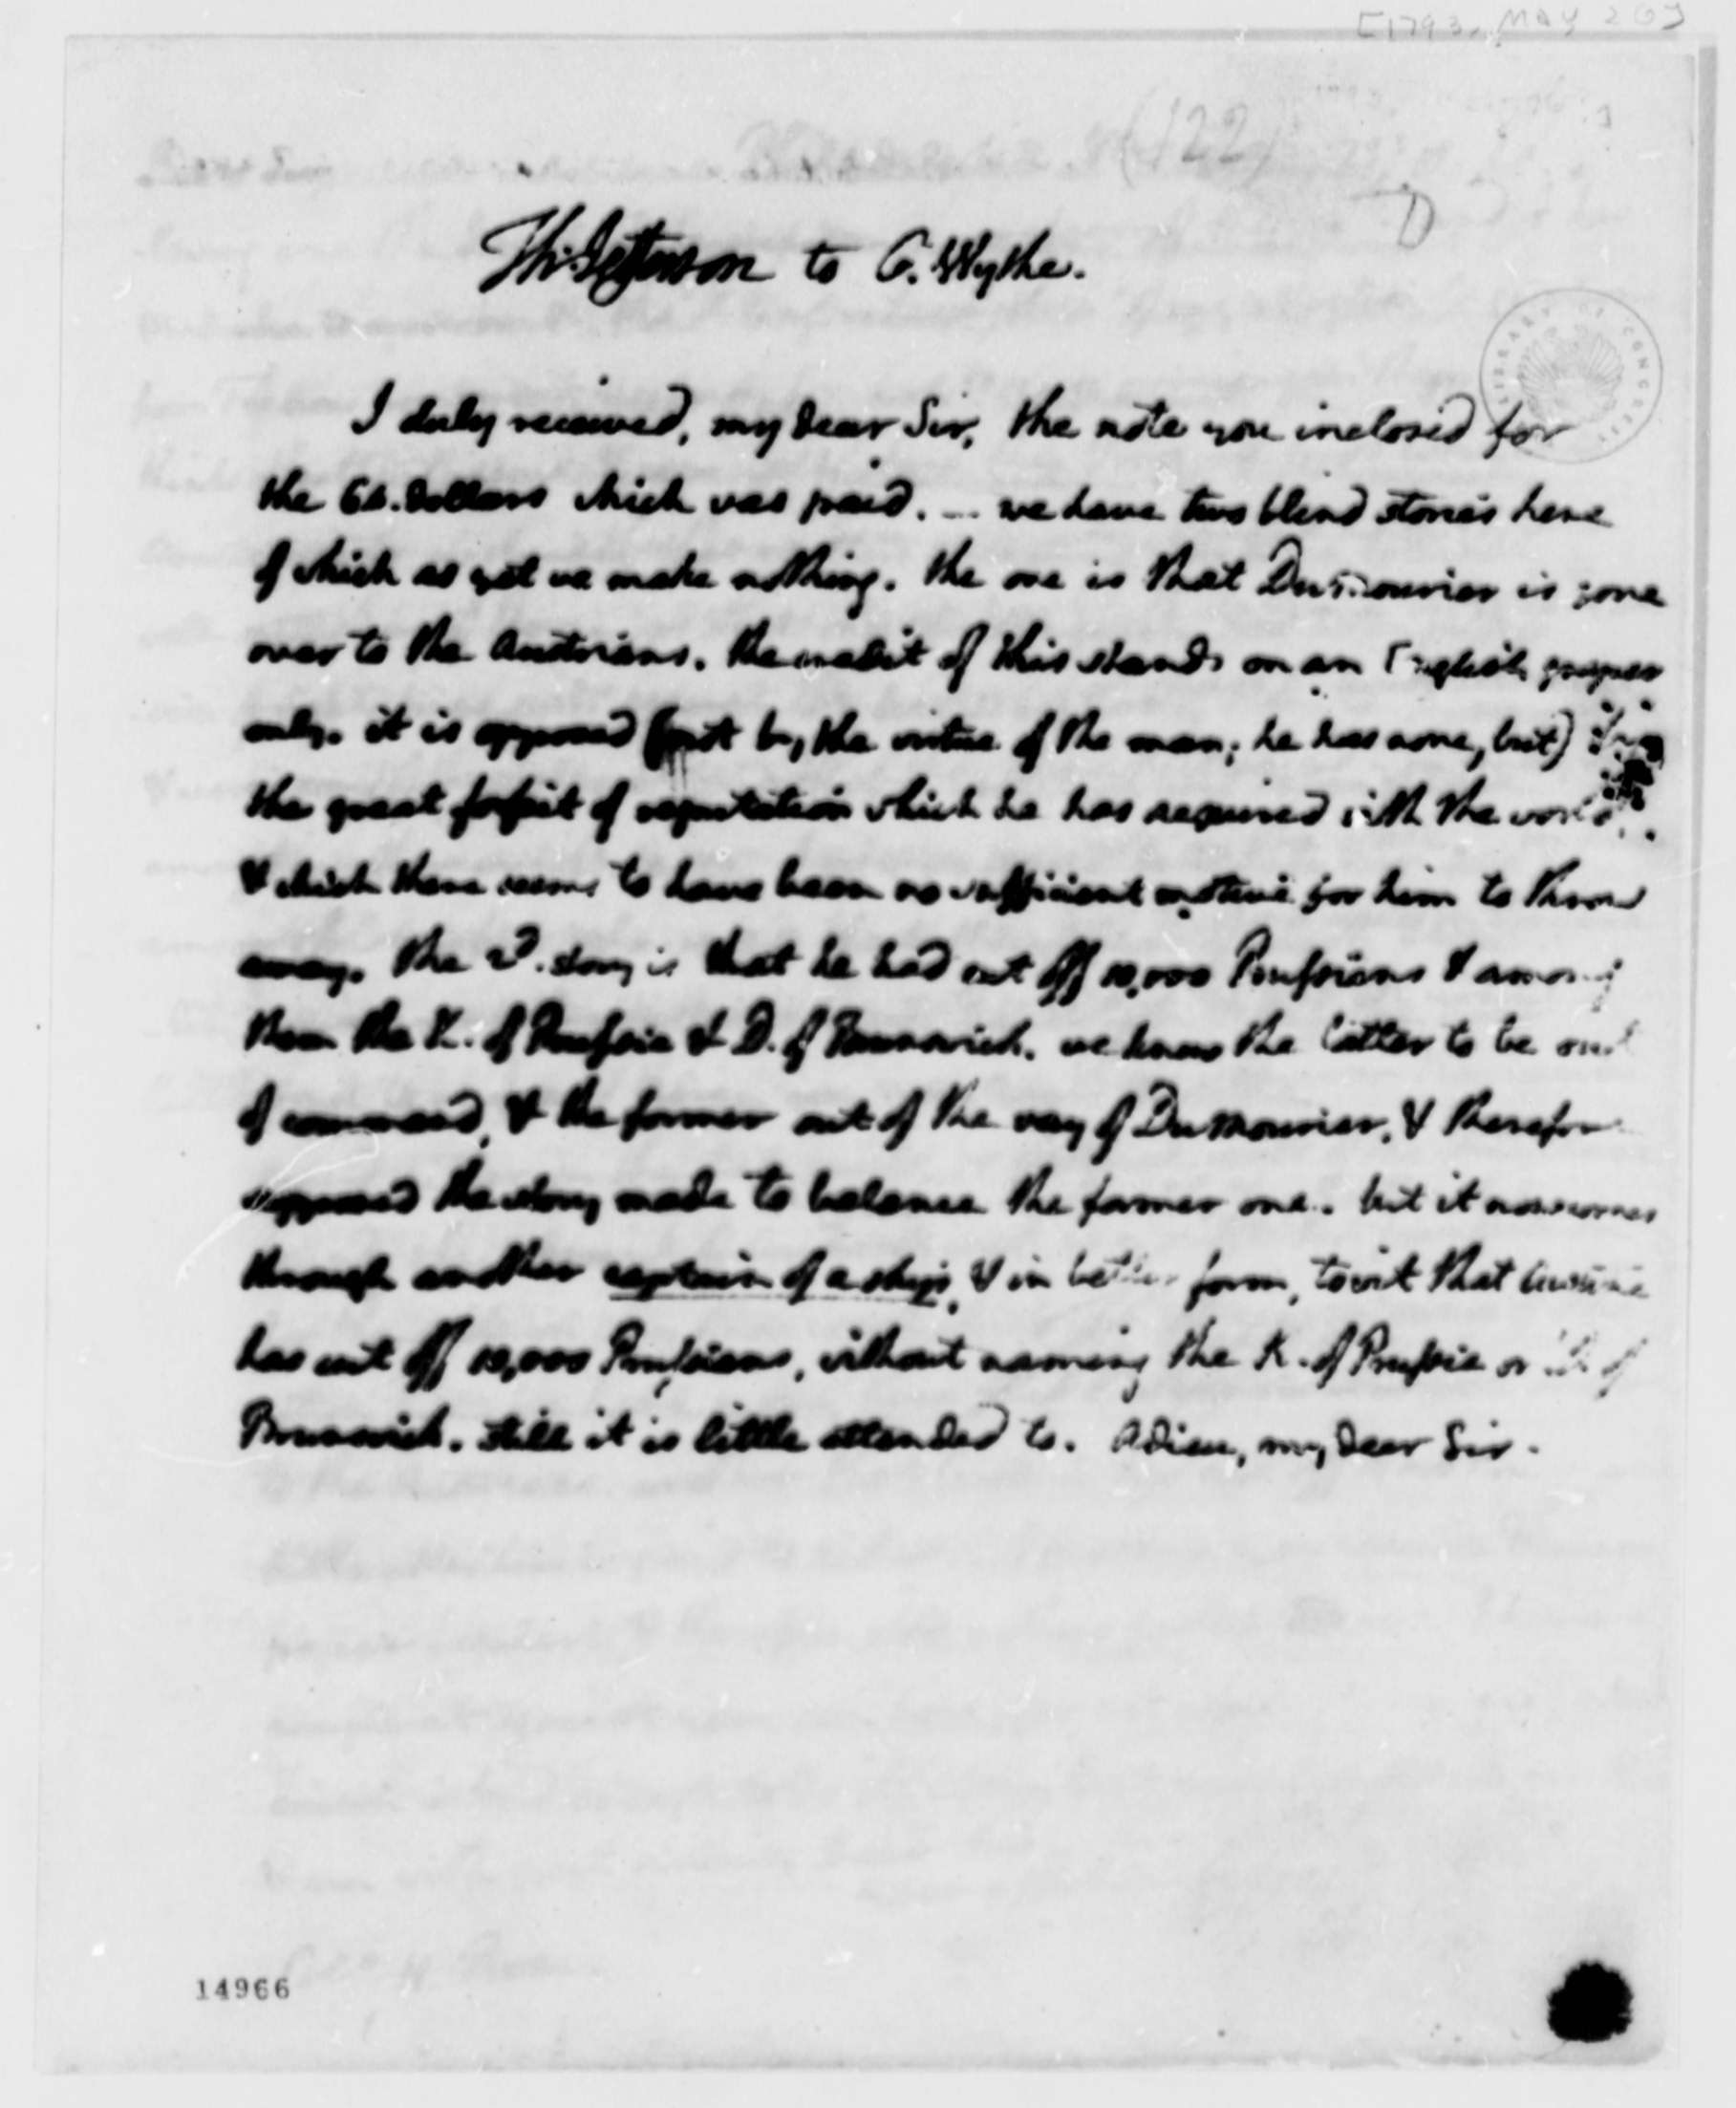 [1793, May 26]
(122)
D
Th: Jefferson to G. Wythe.
I duly received, my dear Sir, the note you inclosed for
the dollars which was paid. — we have two blind stories here
of which as yet we make nothing. the one is that Dumourier is gone
over to the Austrians. the credit of this stands on an English paper
only. it is opposed (not by the virtue of the man; he has none, but)
the great forfeit of reputation which he has acquired with the world,
& which there seems to have been no sufficient motive for him to throw
away. the 2d. story is that he had cut off 10,000 Prussians & among
them the K. of Prussia & D. of Brunswick. we know the latter to be out
of command, & the former out of the way of Dumourier, & therefore
supposed the story made to balance the former one. but it now comes
through another captain of a ship, & in better form, towit that Custine
has cut off 10,000 Prussians, without naming the K. of Prussia or D. of
Brunswick. still it is little attended to. Adieu, my dear Sir.
LIBRARY OF CONGRESS
14966